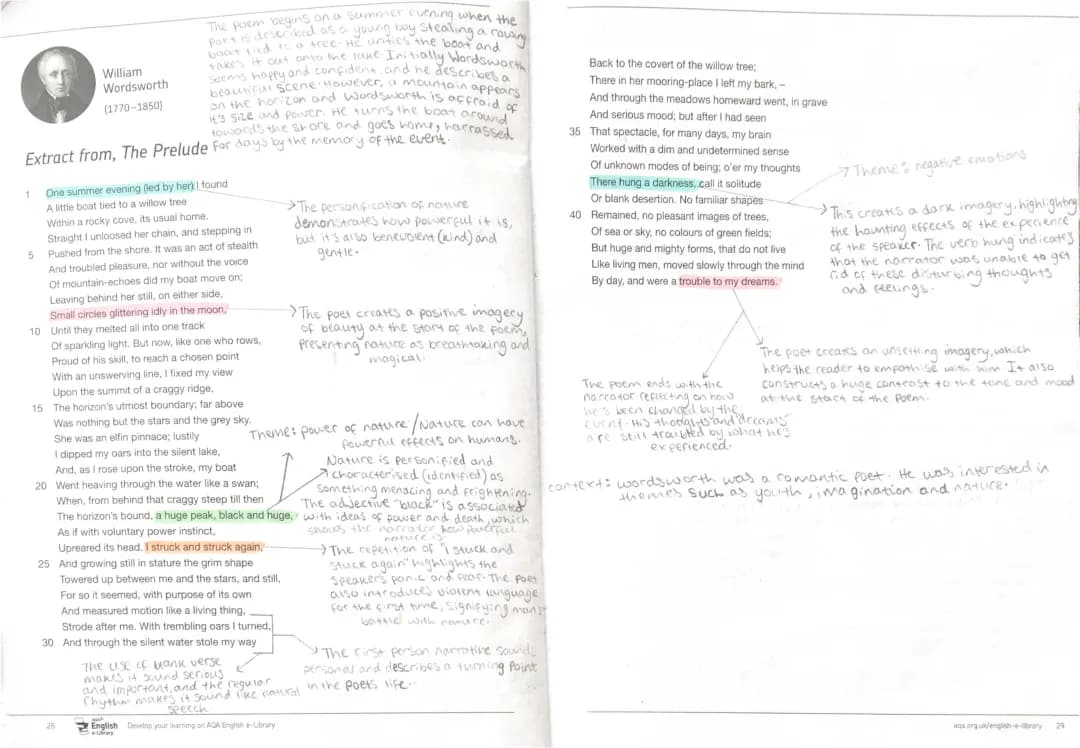 The poem begins on a summer evening when the
poet is described as a young boy stealing a rowing
boat tied to a tree. He unties the boat and
takes it out onto the lake. Initially Wordsworth
seems happy and confident, and he describes a
beautiful scene. However, a mountain appears
on the horizon and Wordsworth is affraid of
it's size and power. He turns the boat around
towards the shore and goes home, harrassed
for days by the memory of the event.
William
Wordsworth
(1770–1850)
Extract from, The Prelude
1 One summer evening (led by her) I found
A little boat tied to a willow tree
Within a rocky cove, its usual home.
Straight I unloosed her chain, and stepping in
5 Pushed from the shore. It was an act of stealth
And troubled pleasure, nor without the voice
Of mountain-echoes did my boat move on;
Leaving behind her still, on either side,
Small circles glittering idly in the moon,
10 Until they melted all into one track
Of sparkling light. But now, like one who rows,
Proud of his skill, to reach a chosen point
With an unswerving line, I fixed my view
Upon the summit of a craggy ridge,
15 The horizon's utmost boundary; far above
Was nothing but the stars and the grey sky.
She was an elfin pinnace; lustily
I dipped my oars into the silent lake,
And, as I rose upon the stroke, my boat
20 Went heaving through the water like a swan;
When, from behind that craggy steep till then
The horizon's bound, a huge peak, black and huge,
As if with voluntary power instinct,
Upreared its head. I struck and struck again,
25 And growing still in stature the grim shape
Towered up between me and the stars, and still,
For so it seemed, with purpose of its own
And measured motion like a living thing,
Strode after me. With trembling oars I turned,
30 And through the silent water stole my way
The personification of nature
demonstrates how powerful it is,
but it's also benevolent (kind) and
gentle.
The poet creates a positive imagery
of beauty at the start of the poem,
presenting nature as breathtaking and
magical.
Theme: power of nature / Nature can have
powerful effects on humans.
Nature is personified and
characterised (identified) as
something menacing and frightening.
The adjective "black" is associated
with ideas of power and death, which
shows the narrator how powerful
nature is.
The repetition of "I stuck and
stuck again" highlights the
speaker's panic and fear. The poet
also introduces violent language
for the first time, signifying mans
battle with nature.
The first person narrative sound
personal and describes a turning point
in the poets life.
The use of blank verse
makes it sound serious
and important, and the regular
rhythm makes it sound like natural
speech.
28 AQA English e-Library Develop your learning on AQA English e-Library
Back to the covert of the willow tree;
There in her mooring-place I left my bark, –
And through the meadows homeward went, in grave
And serious mood; but after I had seen
35 That spectacle, for many days, my brain
Worked with a dim and undetermined sense
Of unknown modes of being; o'er my thoughts
There hung a darkness, call it solitude
Or blank desertion. No familiar shapes
40 Remained, no pleasant images of trees,
Of sea or sky, no colours of green fields;
But huge and mighty forms, that do not live
Like living men, moved slowly through the mind
By day, and were a trouble to my dreams.
Theme: negative emotions
This creates a dark imagery, highlighting
the haunting effects of the experience
of the speaker. The verb hung indicates
that the narrator was unable to get
rid of these disturbing thoughts
and feelings.
The poet creates an unsettling imagery, which
helps the reader to empathise with him. It also
constructs a huge contrast to the tone and mood
at the start of the poem.
The poem ends with the
narrator reflecting on how
he's been changed by the
event. His thoughts and "dreams"
are still troubled by what he's
experienced.
context: wordsworth was a romantic poet. He was interested in
themes such as youth, imagination and nature.
aqa.org.uk/english-e-library 29